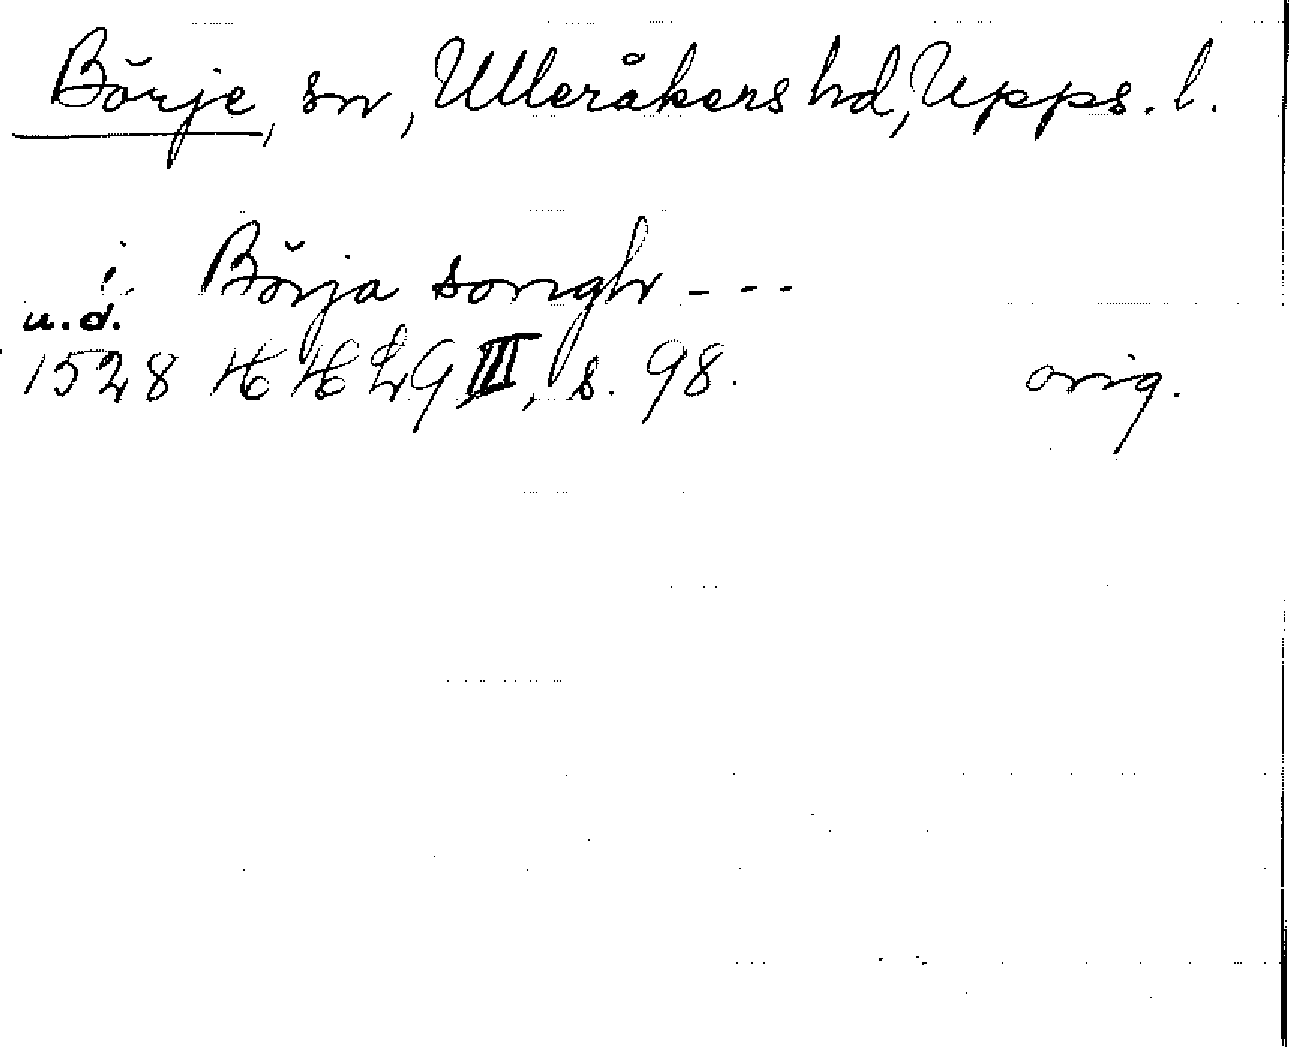 Börje, sn, Ulleråkers hd, Upps. l.
i Börja songh - - -
u.d.
1528 HHLG III, s. 98. orig.